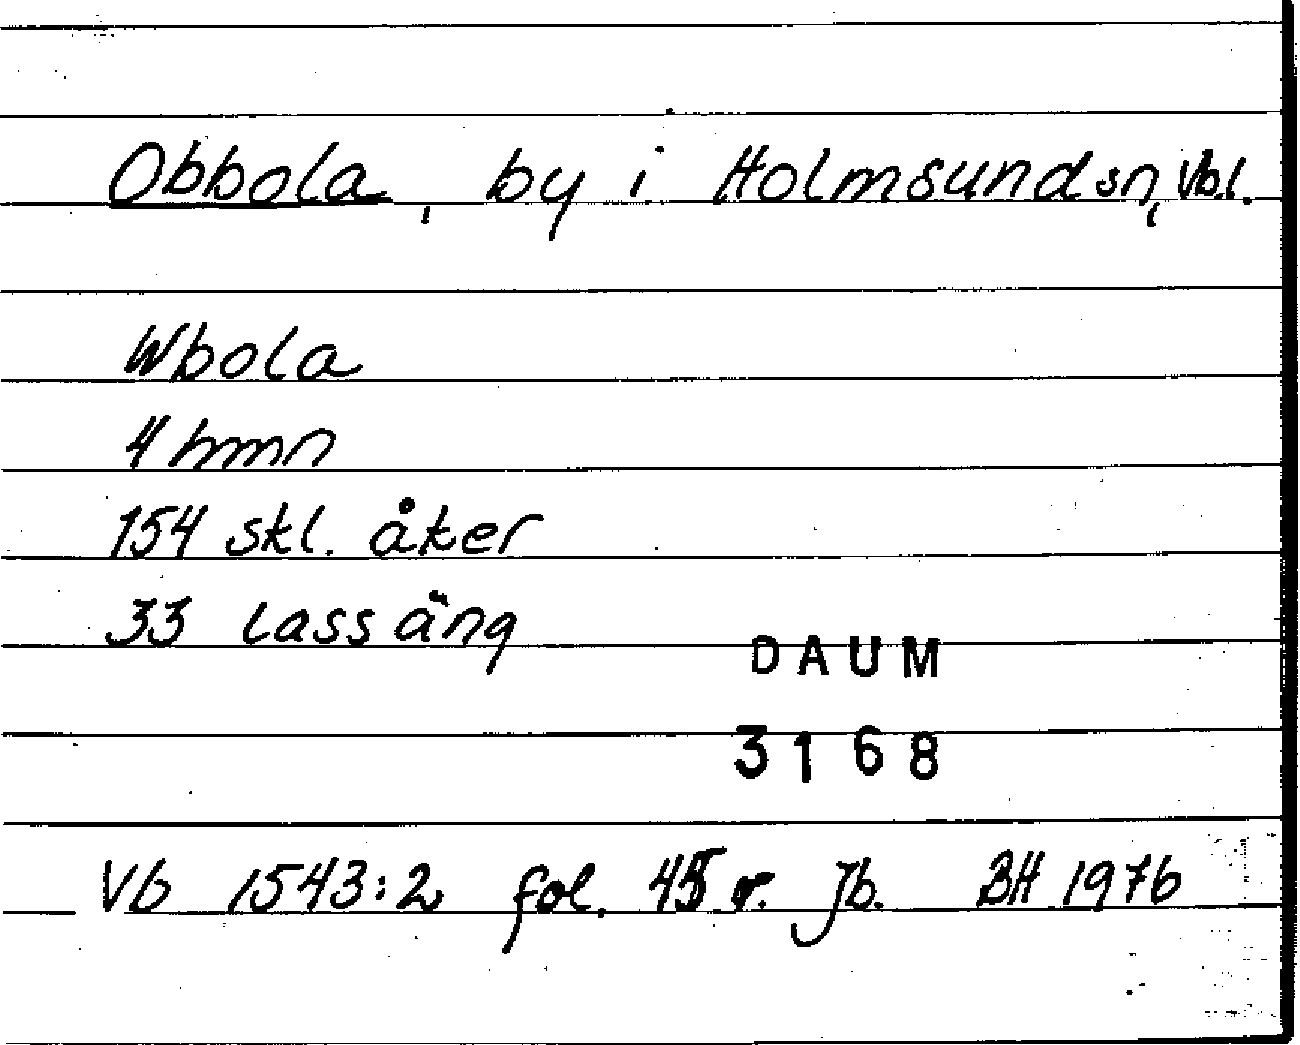 Obbola, by i Holmsunds sn, Vbl.
Wbola
4 hmn
154 skl. åker
33 lass äng
DAUM
3168
Vb 1543:2 fol. 45 r. Jb. BH 1976